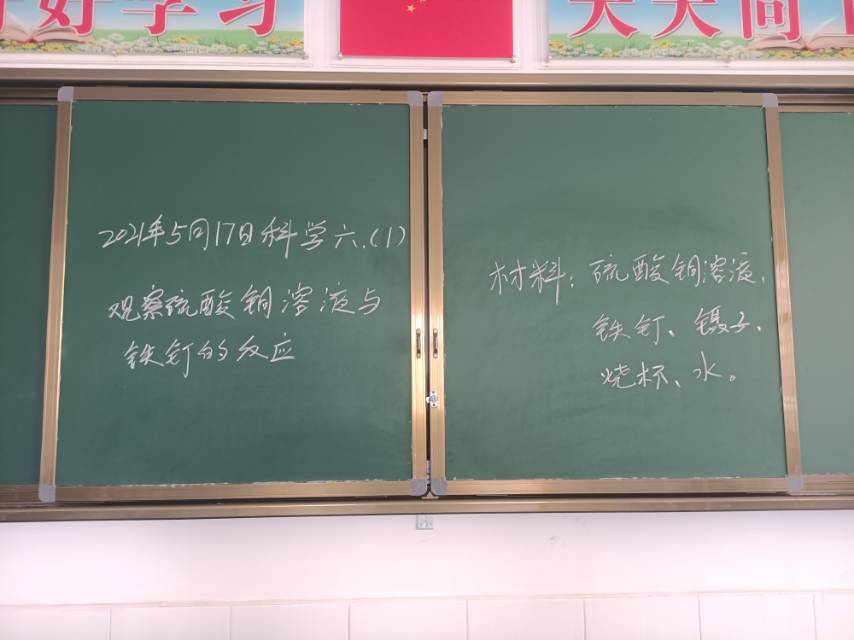 好好学习
天天向
2021年5月17日科学六.(1)
观察硫酸铜溶液与
铁钉的反应
材料：硫酸铜溶液、
铁钉、镊子、
烧杯、水。